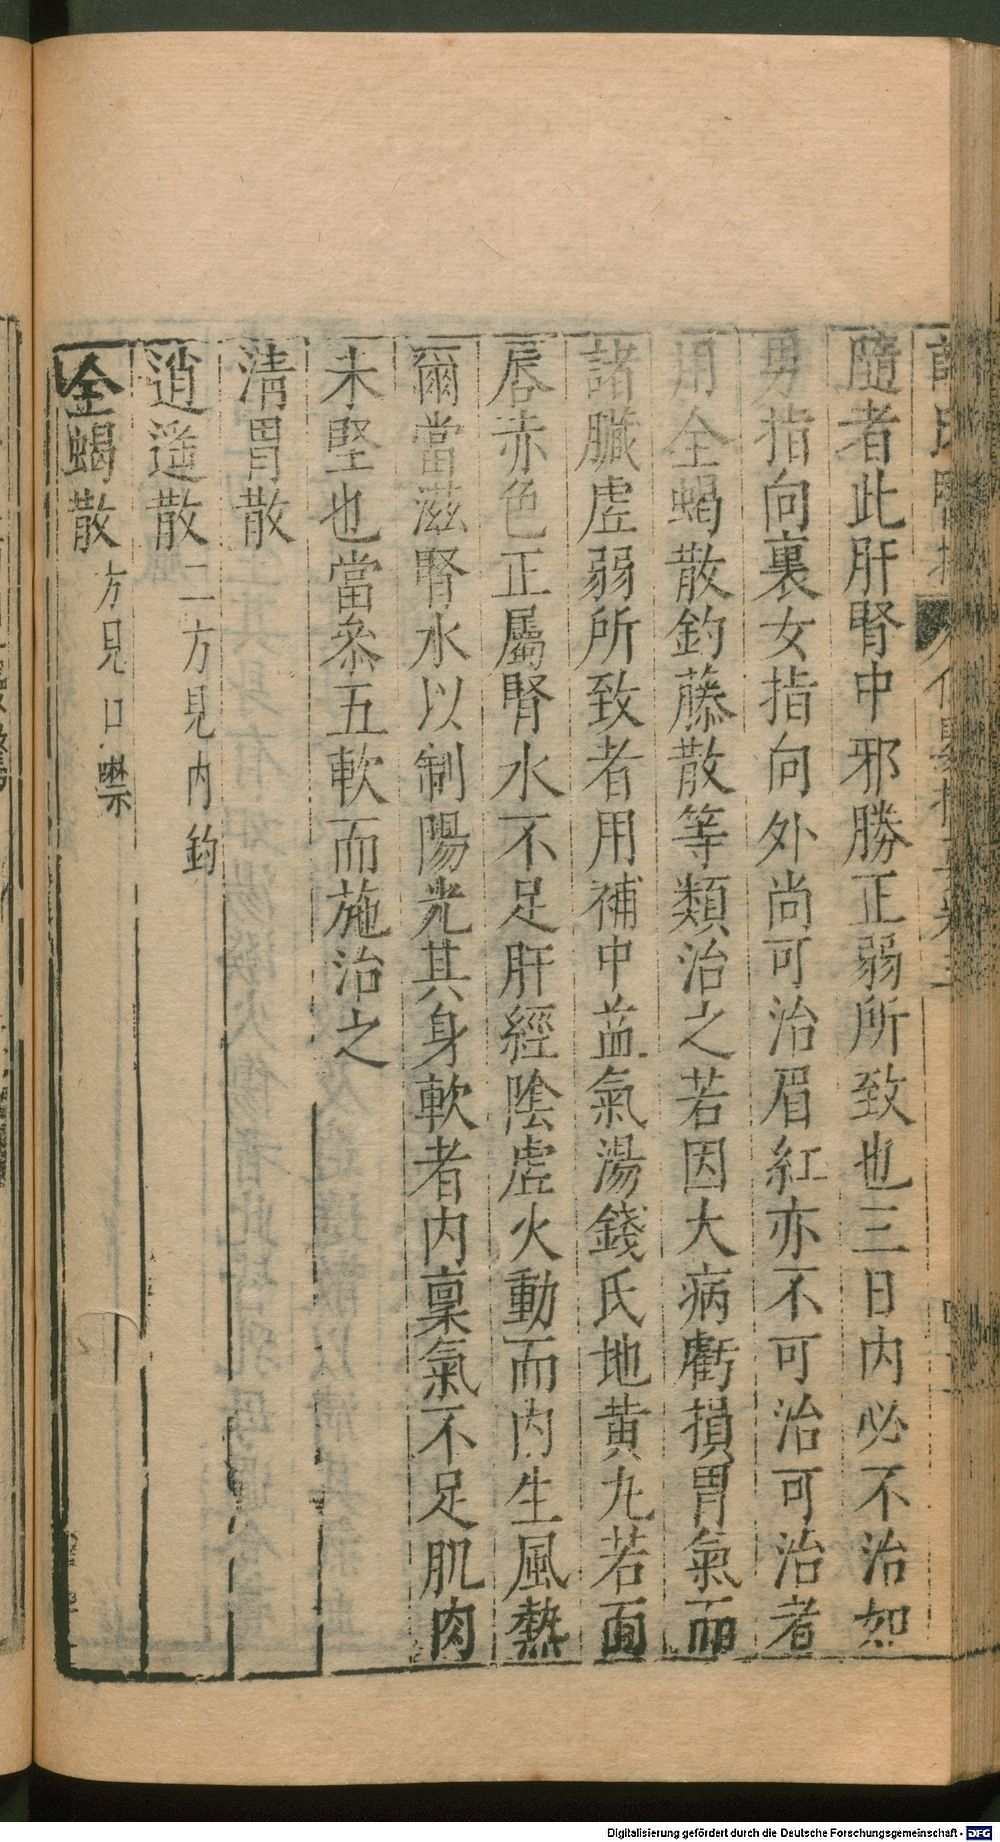 隨者此肝腎中邪勝正弱所致也三日內必不治如
男指向裏女指向外尚可治眉紅亦不可治可治者
用全蝎散釣藤散等類治之若因大病虧損胃氣而
諸臟虗弱所致者用補中益氣湯錢氏地黄丸若面
唇赤色正屬腎水不足肝經陰虗火動而内生風熱
爾當滋腎水以制陽光其身軟者内禀氣不足肌肉
未堅也當叅五軟而施治之
清胃散
逍遥散 二方見内釣
全蝎散 方見口噤
Digitalisierung gefördert durch die Deutsche Forschungsgemeinschaft - DFG